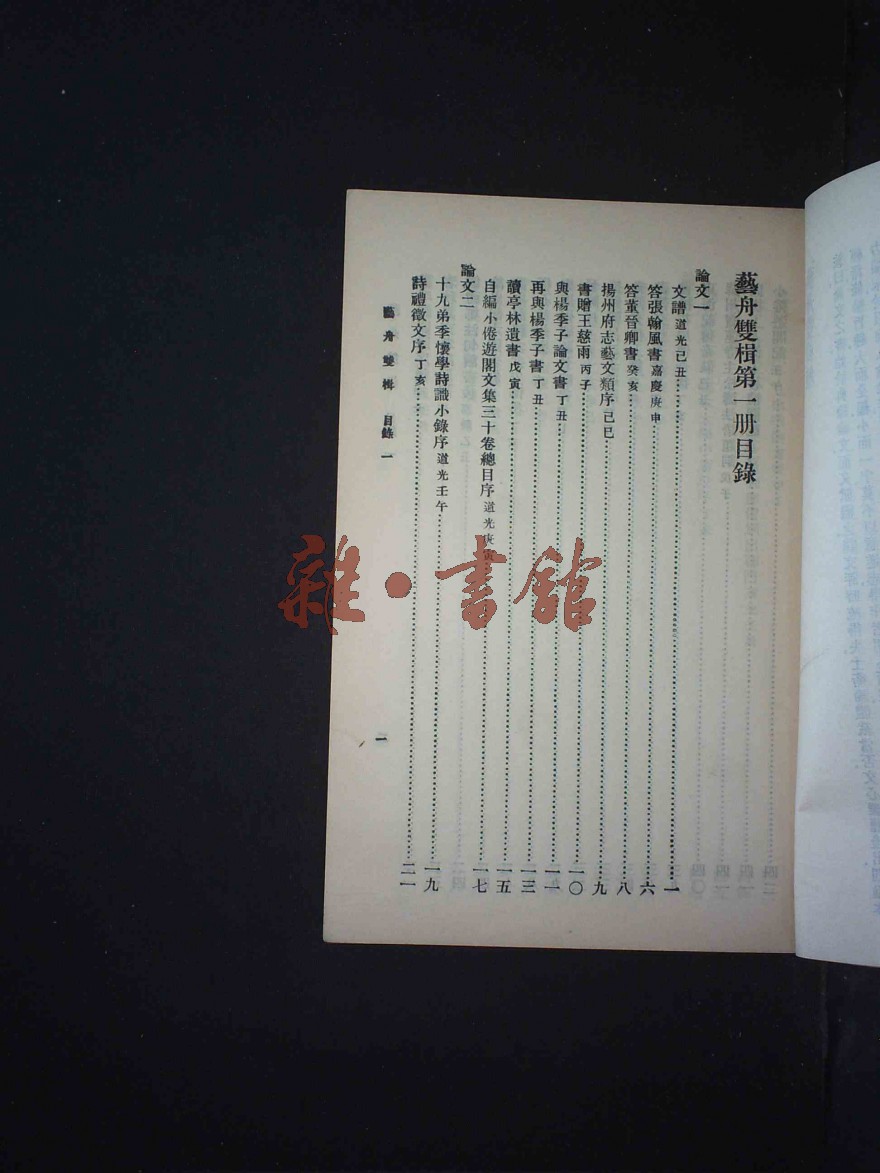 藝舟雙楫第一册目錄
論文一
文譜道光己丑……一
答張翰風書嘉慶庚申……六
答董晉卿書癸亥……八
揚州府志藝文類序己巳……九
書贈王慈雨丙子……一〇
與楊季子論文書丁丑……一一
再與楊季子書丁丑……一三
讀亭林遺書戊寅……一五
自編小倦遊閣文集三十卷總目序道光庚寅……一七
論文二
十九弟季懷學詩識小錄序道光壬午……一九
詩禮徵文序丁亥……二一
藝舟雙楫 目錄一
一
雜·書館